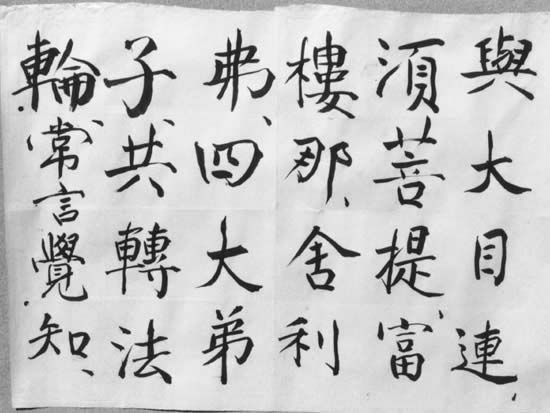 與大目連
須菩提、富
樓、那、舍利
弗、四大弟
子、共、轉法
輪、常言覺知、